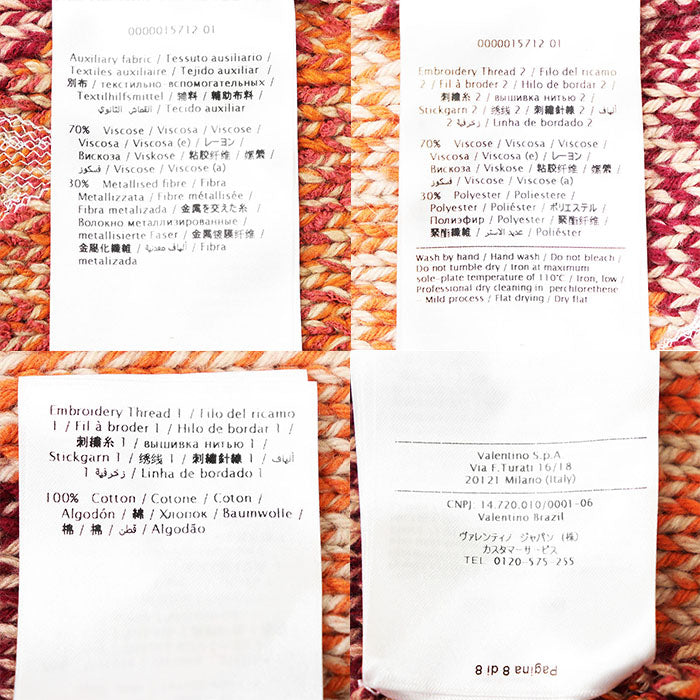 0000015712 01
Auxiliary fabric / Tessuto ausiliario /
Textiles auxiliaire / Tejido auxiliar /
別布 / текстильно-вспомогательных /
Textilhilfsmittel / 辅料 / 輔助布料 /
القماش الثانوي / Tecido auxiliar
70% Viscose / Viscosa / Viscose /
Viscosa / Viscosa (e) / レーヨン /
Вискоза / Viskose / 粘胶纤维 / 嫘縈 /
فسكوز / Viscose / Viscose (a)
30% Metallised fibre / Fibra
Metallizzata / Fibre métallisée /
Fibra metalizada / 金属を交えた糸 /
Волокно металлизированные /
metallisierte Faser / 金属镀膜纤维 /
金屬化纖維 / ألياف معدنية / Fibra
metalizada
0000015712 01
Embroidery Thread 2 / Filo del ricamo
2 / Fil à broder 2 / Hilo de bordar 2 /
刺繍糸 2 / вышивка нитью 2 /
Stickgarn 2 / 绣线 2 / 刺繡針線 2 / ألياف
زخرفية 2 / Linha de bordado 2
70% Viscose / Viscosa / Viscose /
Viscosa / Viscosa (e) / レーヨン /
Вискоза / Viskose / 粘胶纤维 / 嫘縈 /
فسكوز / Viscose / Viscose (a)
30% Polyester / Poliestere /
Polyester / Poliéster / ポリエステル /
Полиэфир / Polyester / 聚酯纤维 /
聚酯纖維 / عديد الاستر / Poliéster
Wash by hand / Hand wash / Do not bleach /
Do not tumble dry / Iron at maximum
sole-plate temperature of 110°C / Iron, low /
Professional dry cleaning in perchlorethene
- Mild process / Flat drying / Dry flat
Embroidery Thread 1 / Filo del ricamo
1 / Fil à broder 1 / Hilo de bordar 1 /
刺繍糸 1 / вышивка нитью 1 /
Stickgarn 1 / 绣线 1 / 刺繡針線 1 / ألياف
زخرفية 1 / Linha de bordado 1
100% Cotton / Cotone / Coton /
Algodón / 綿 / Хлопок / Baumwolle /
棉 / 棉 / قطن / Algodão
Valentino S.p.A.
Via F.Turati 16/18
20121 Milano (Italy)
CNPJ: 14.720.010/0001-06
Valentino Brazil
ヴァレンティノ ジャパン (株)
カスタマーサービス
TEL 0120-575-255
Pagina 8 di 8